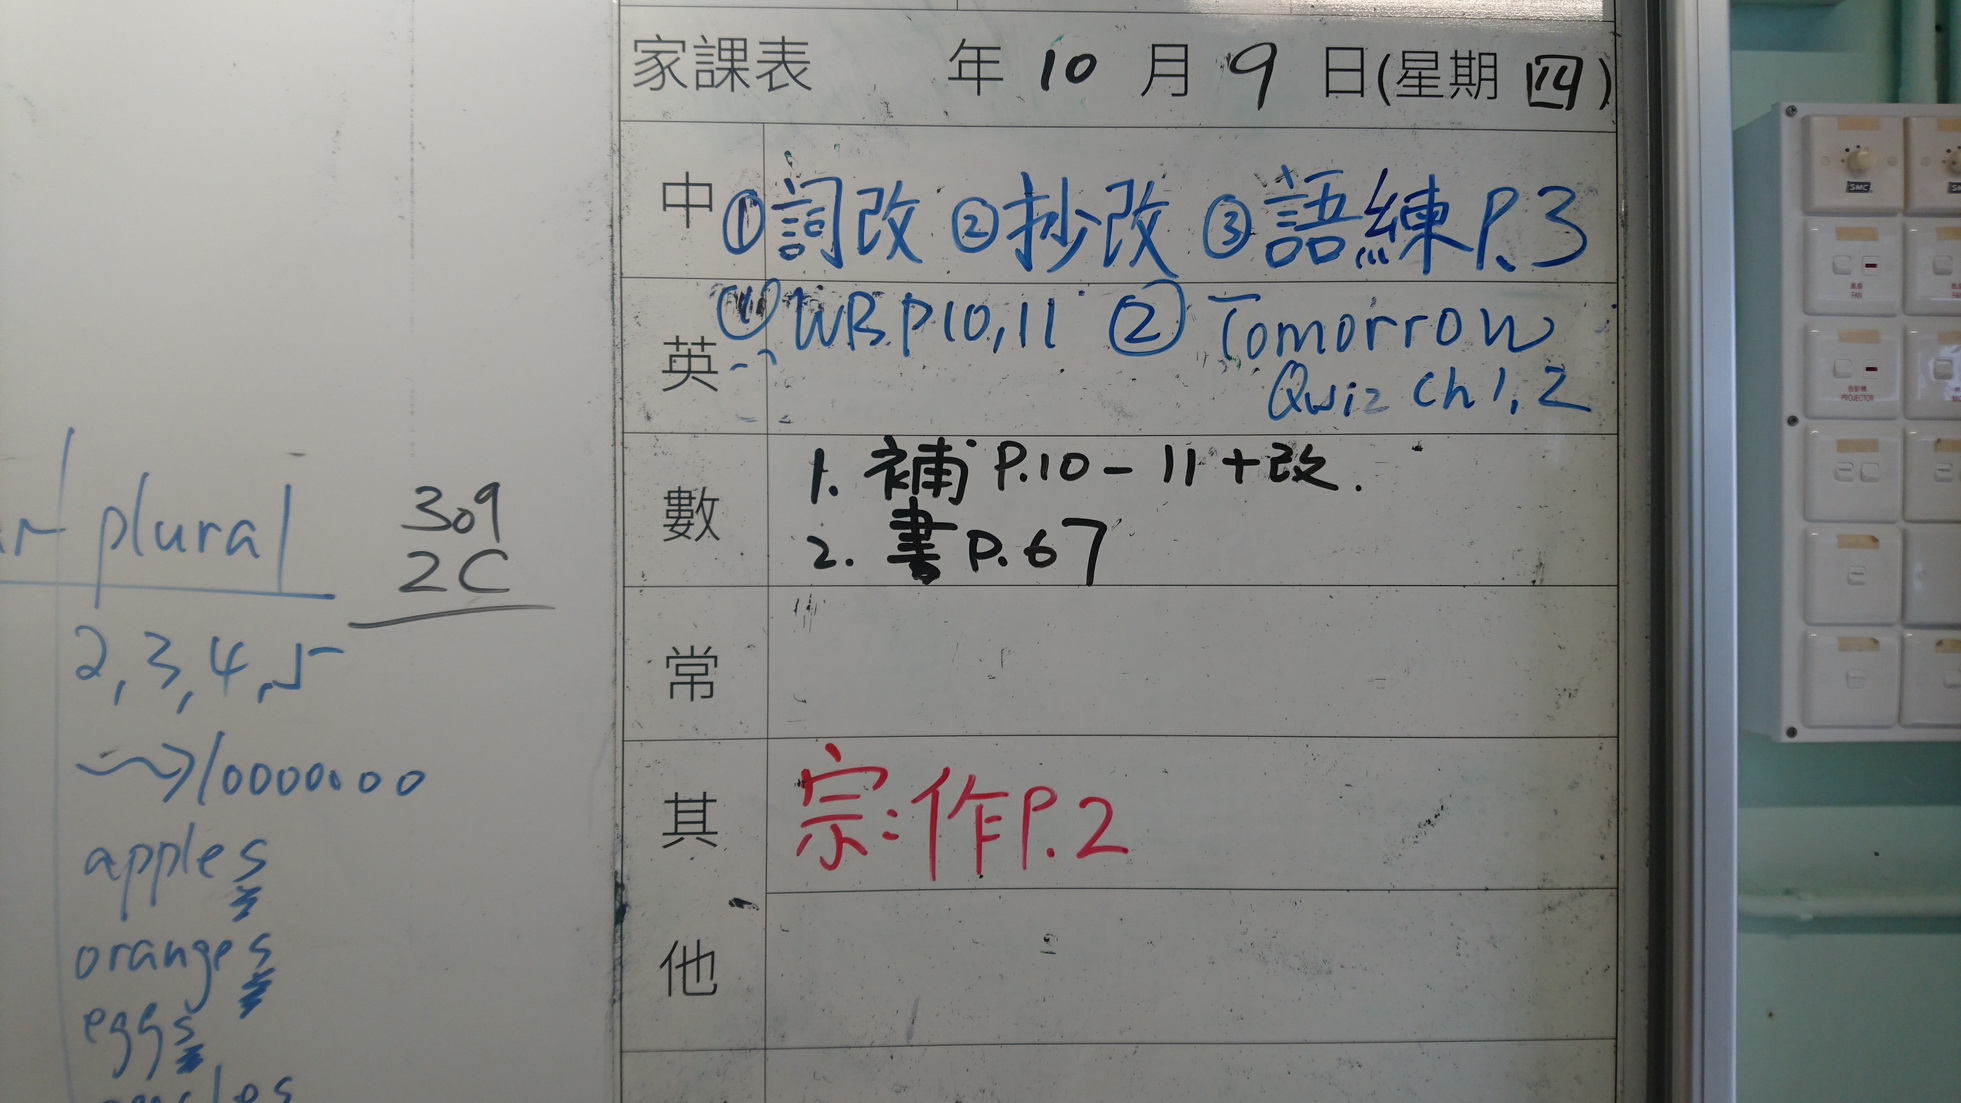 家課表 年 10 月 9 日(星期 四)
中 ①詞改 ②抄改 ③語練 P.3
英 ① WB P10,11 ② Tomorrow
Quiz Ch 1, 2
數 1. 補 P.10 - 11 + 改.
2. 書 P. 67
常
其他 宗:作 P.2
plural
2, 3, 4, 5
1000000
apples
oranges
eggs
309
2C
SMC
風扇
FAN
投影機
PROJECTOR